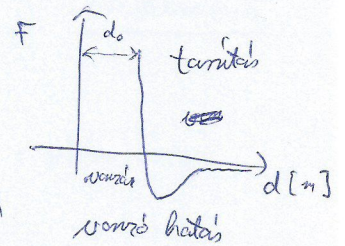 F
d₀
taszítás
vonzás
d [m]
vonzó hatás